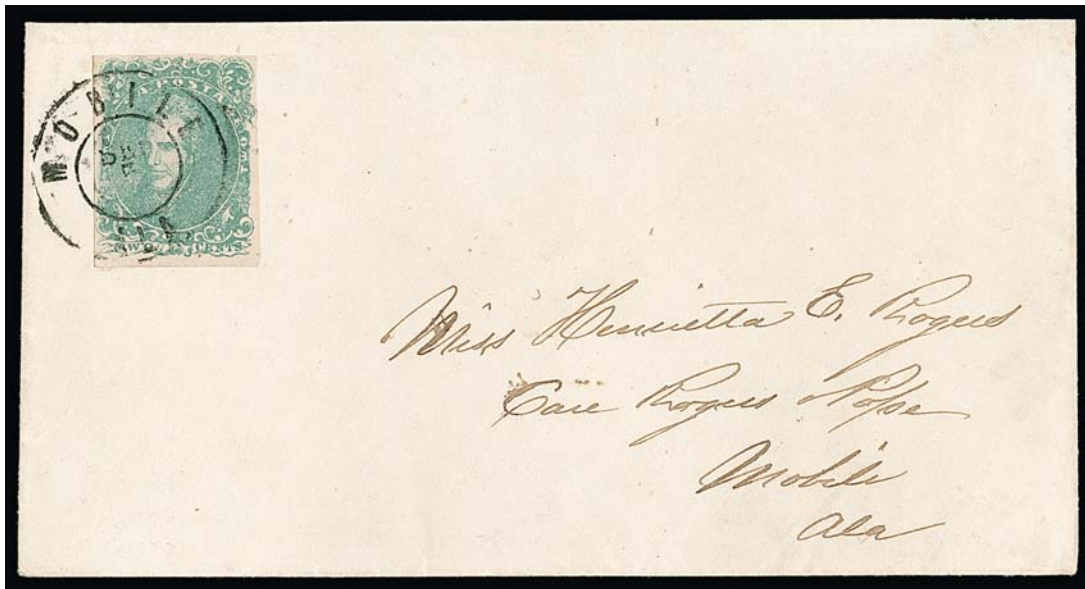 MOBILE
ALA
POSTA
TWO
TWO CENTS
Miss Henrietta E. Rogers
Care Rogers Pope
Mobile
Ala